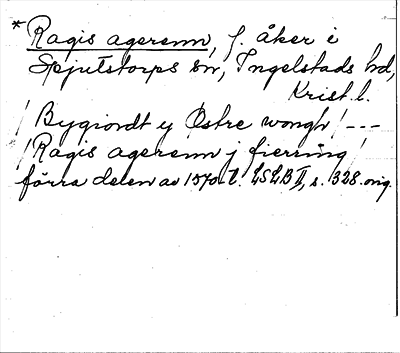 * Ragis agerenn, f. åker i
Spjutstorps sn, Ingelstads hd,
Krist. l.
/ Bygiordt y Østre wongh / ---
/ Ragis agerenn j fierring /
förra delen av 1570-t. LSLB II, s. 328. orig.